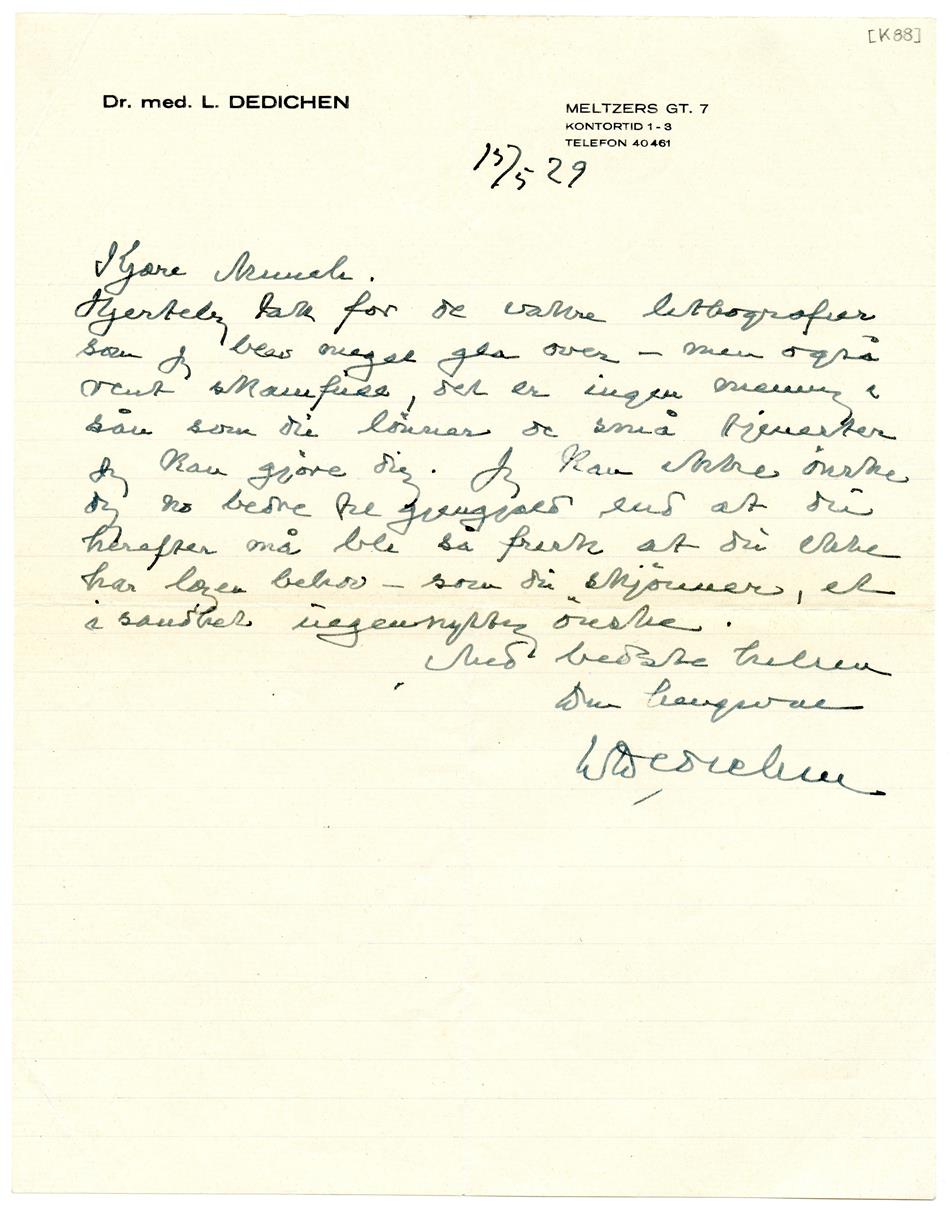 [K88]
Dr. med. L. DEDICHEN
MELTZERS GT. 7
KONTORTID 1-3
TELEFON 40461
15/5 29
Kjære Munch.
Hjertelig tak for de vakre lithografier
som jeg blev meget gla over – men også
rent skamfuld, det er ingen mening i
sån som du lönner de små tjenester
jeg kan gjöre dig. Jeg kan ikke önske
dig no bedre til gjengjæld end at du
herefter må bli så frisk at du ikke
har lægen behov – som du skjönner, et
i sandhet uegennyttig önske.
Med bedste hilsen
Din hengivne
LDedichen